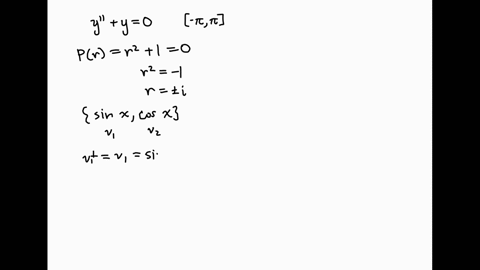 y'' + y = 0 [-π, π]
P(r) = r² + 1 = 0
r² = -1
r = ± i
{sin x, cos x}
v₁ v₂
v₁⊥ = v₁ = si